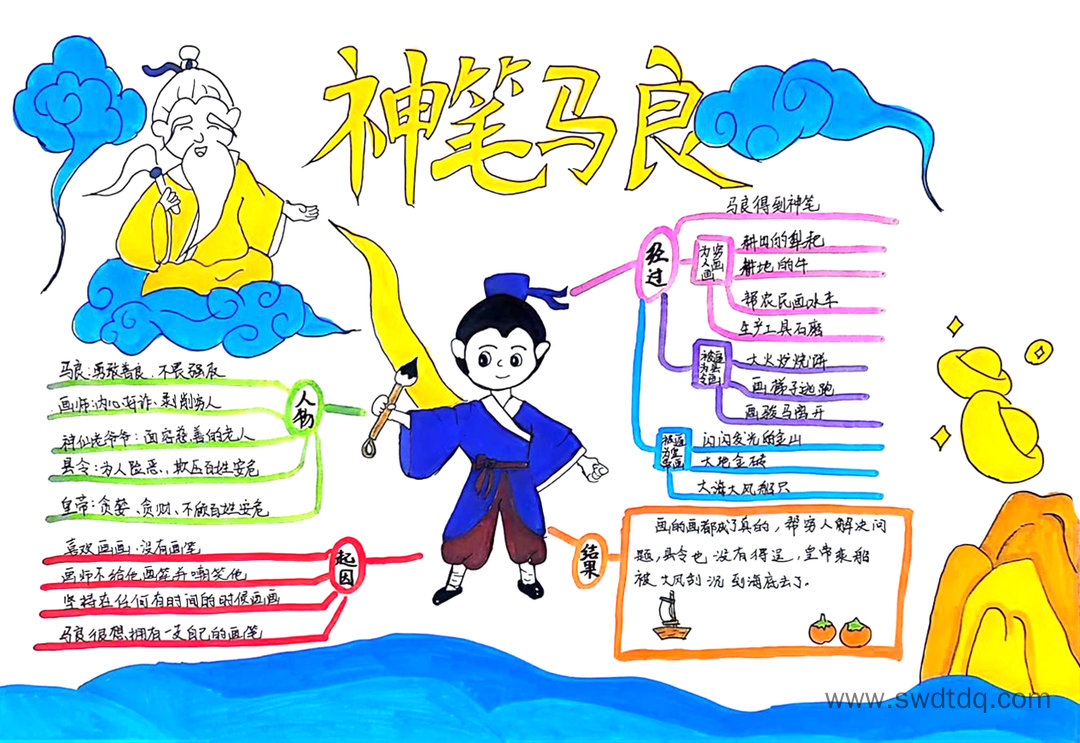 神笔马良
人物
马良:勇敢善良、不畏强权
画师:内心奸诈、剥削穷人
神仙老爷爷:面容慈善的老人
县令:为人险恶、欺压百姓安危
皇帝:贪婪、贪财、不顾百姓安危
起因
喜欢画画,没有画笔
画师不给他画笔并嘲笑他
坚持在任何有时间的时候画画
马良很想拥有一支自己的画笔
经过
马良得到神笔
为穷人画画
耕田的犁耙
耕地的牛
帮农民画水车
生产工具石磨
大火炉烧饼
画梯子逃跑
画骏马离开
闪闪发光的金山
大地金砖
大海大风船只
结果
画的画都成了真的,帮穷人解决问
题,县令也没有得逞,皇帝乘船
被大风刮沉到海底去了。
www.swdtdq.com